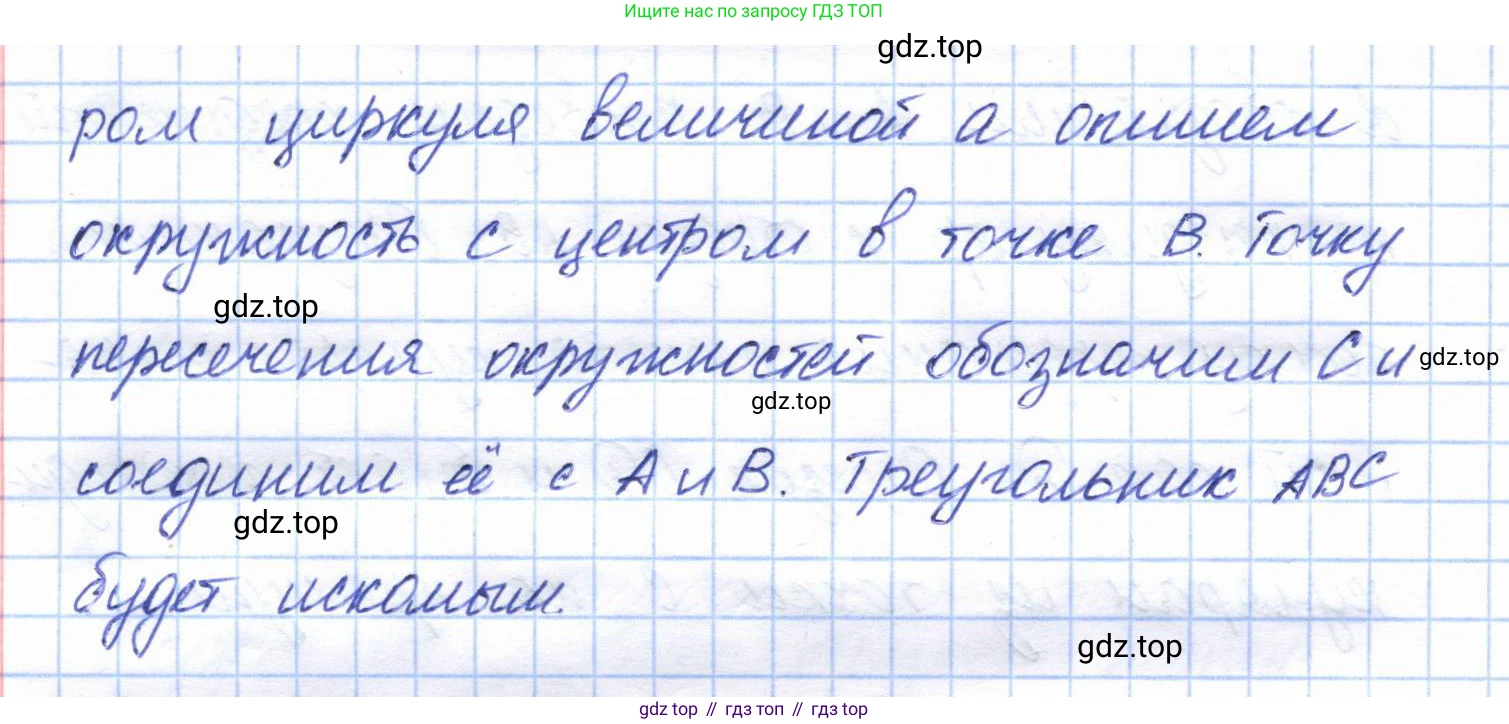 Ищите нас по запросу ГДЗ ТОП
gdz.top
ром циркуля величиной а опишем
окружность с центром в точке В. Точку
gdz.top
пересечения окружностей обозначим С и gdz.top
gdz.top
соединим её с А и В. Треугольник АВС
gdz.top
будет искомым.
gdz.top
gdz top // гдз топ // гдз top